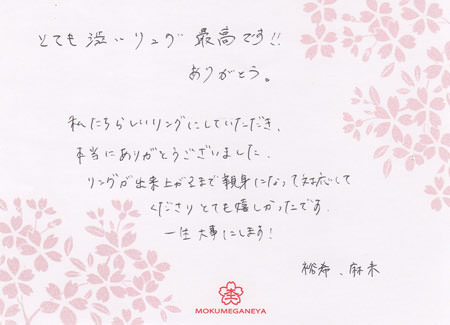 とても渋いリング最高です!!
ありがとう。
私たちらしいリングにしていただき、
本当にありがとうございました。
リングが出来上がるまで親身になって対応して
くださりとても嬉しかったです。
一生大事にします!
裕希、麻未
MOKUMEGANEYA